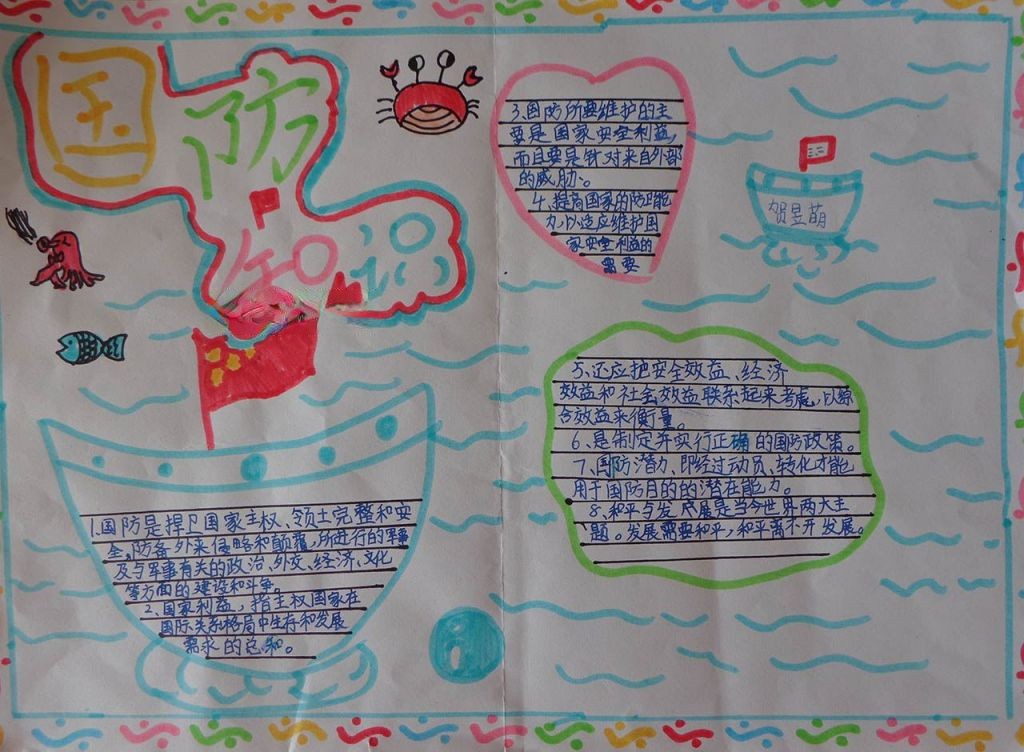 国防
知识
1.国防是捍卫国家主权、领土完整和安
全,防备外来侵略和颠覆,所进行的军事
及与军事有关的政治,外交、经济、文化
等方面的建设和斗争。
2、国家利益,指主权国家在
国际关系格局中生存和发展
需求的总和。
3.国防所要维护的主
要是国家安全利益,
而且要是针对来自外部
的威胁。
4、提高国家的防卫能
力,以适应维护国
家安全利益的
需要
贺昱萌
5、还应把安全效益、经济
效益和社会效益联系起来考虑,以综
合效益来衡量。
6、是制定并实行正确的国防政策。
7、国防潜力,即经过动员、转化才能
用于国防目的的潜在能力。
8、和平与发展是当今世界两大主
题。发展需要和平,和平离不开发展。